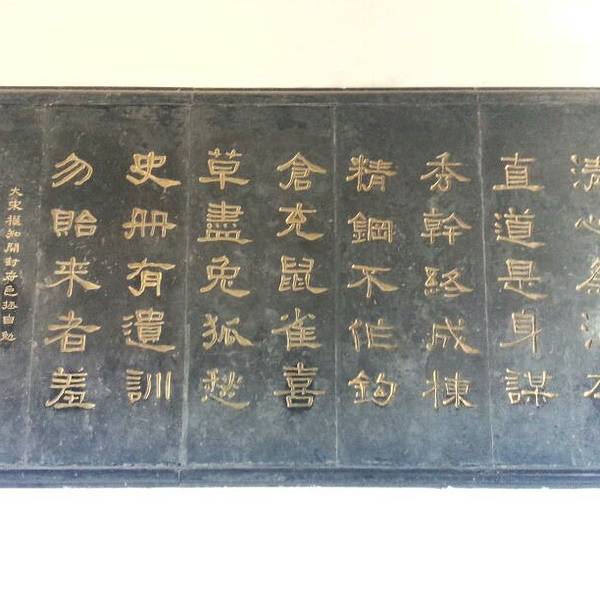 清心爲治本
直道是身謀
秀幹終成棟
精鋼不作鈎
倉充鼠雀喜
草盡兔狐愁
史冊有遺訓
勿貽来者羞
大宋權知開封府包拯自勉